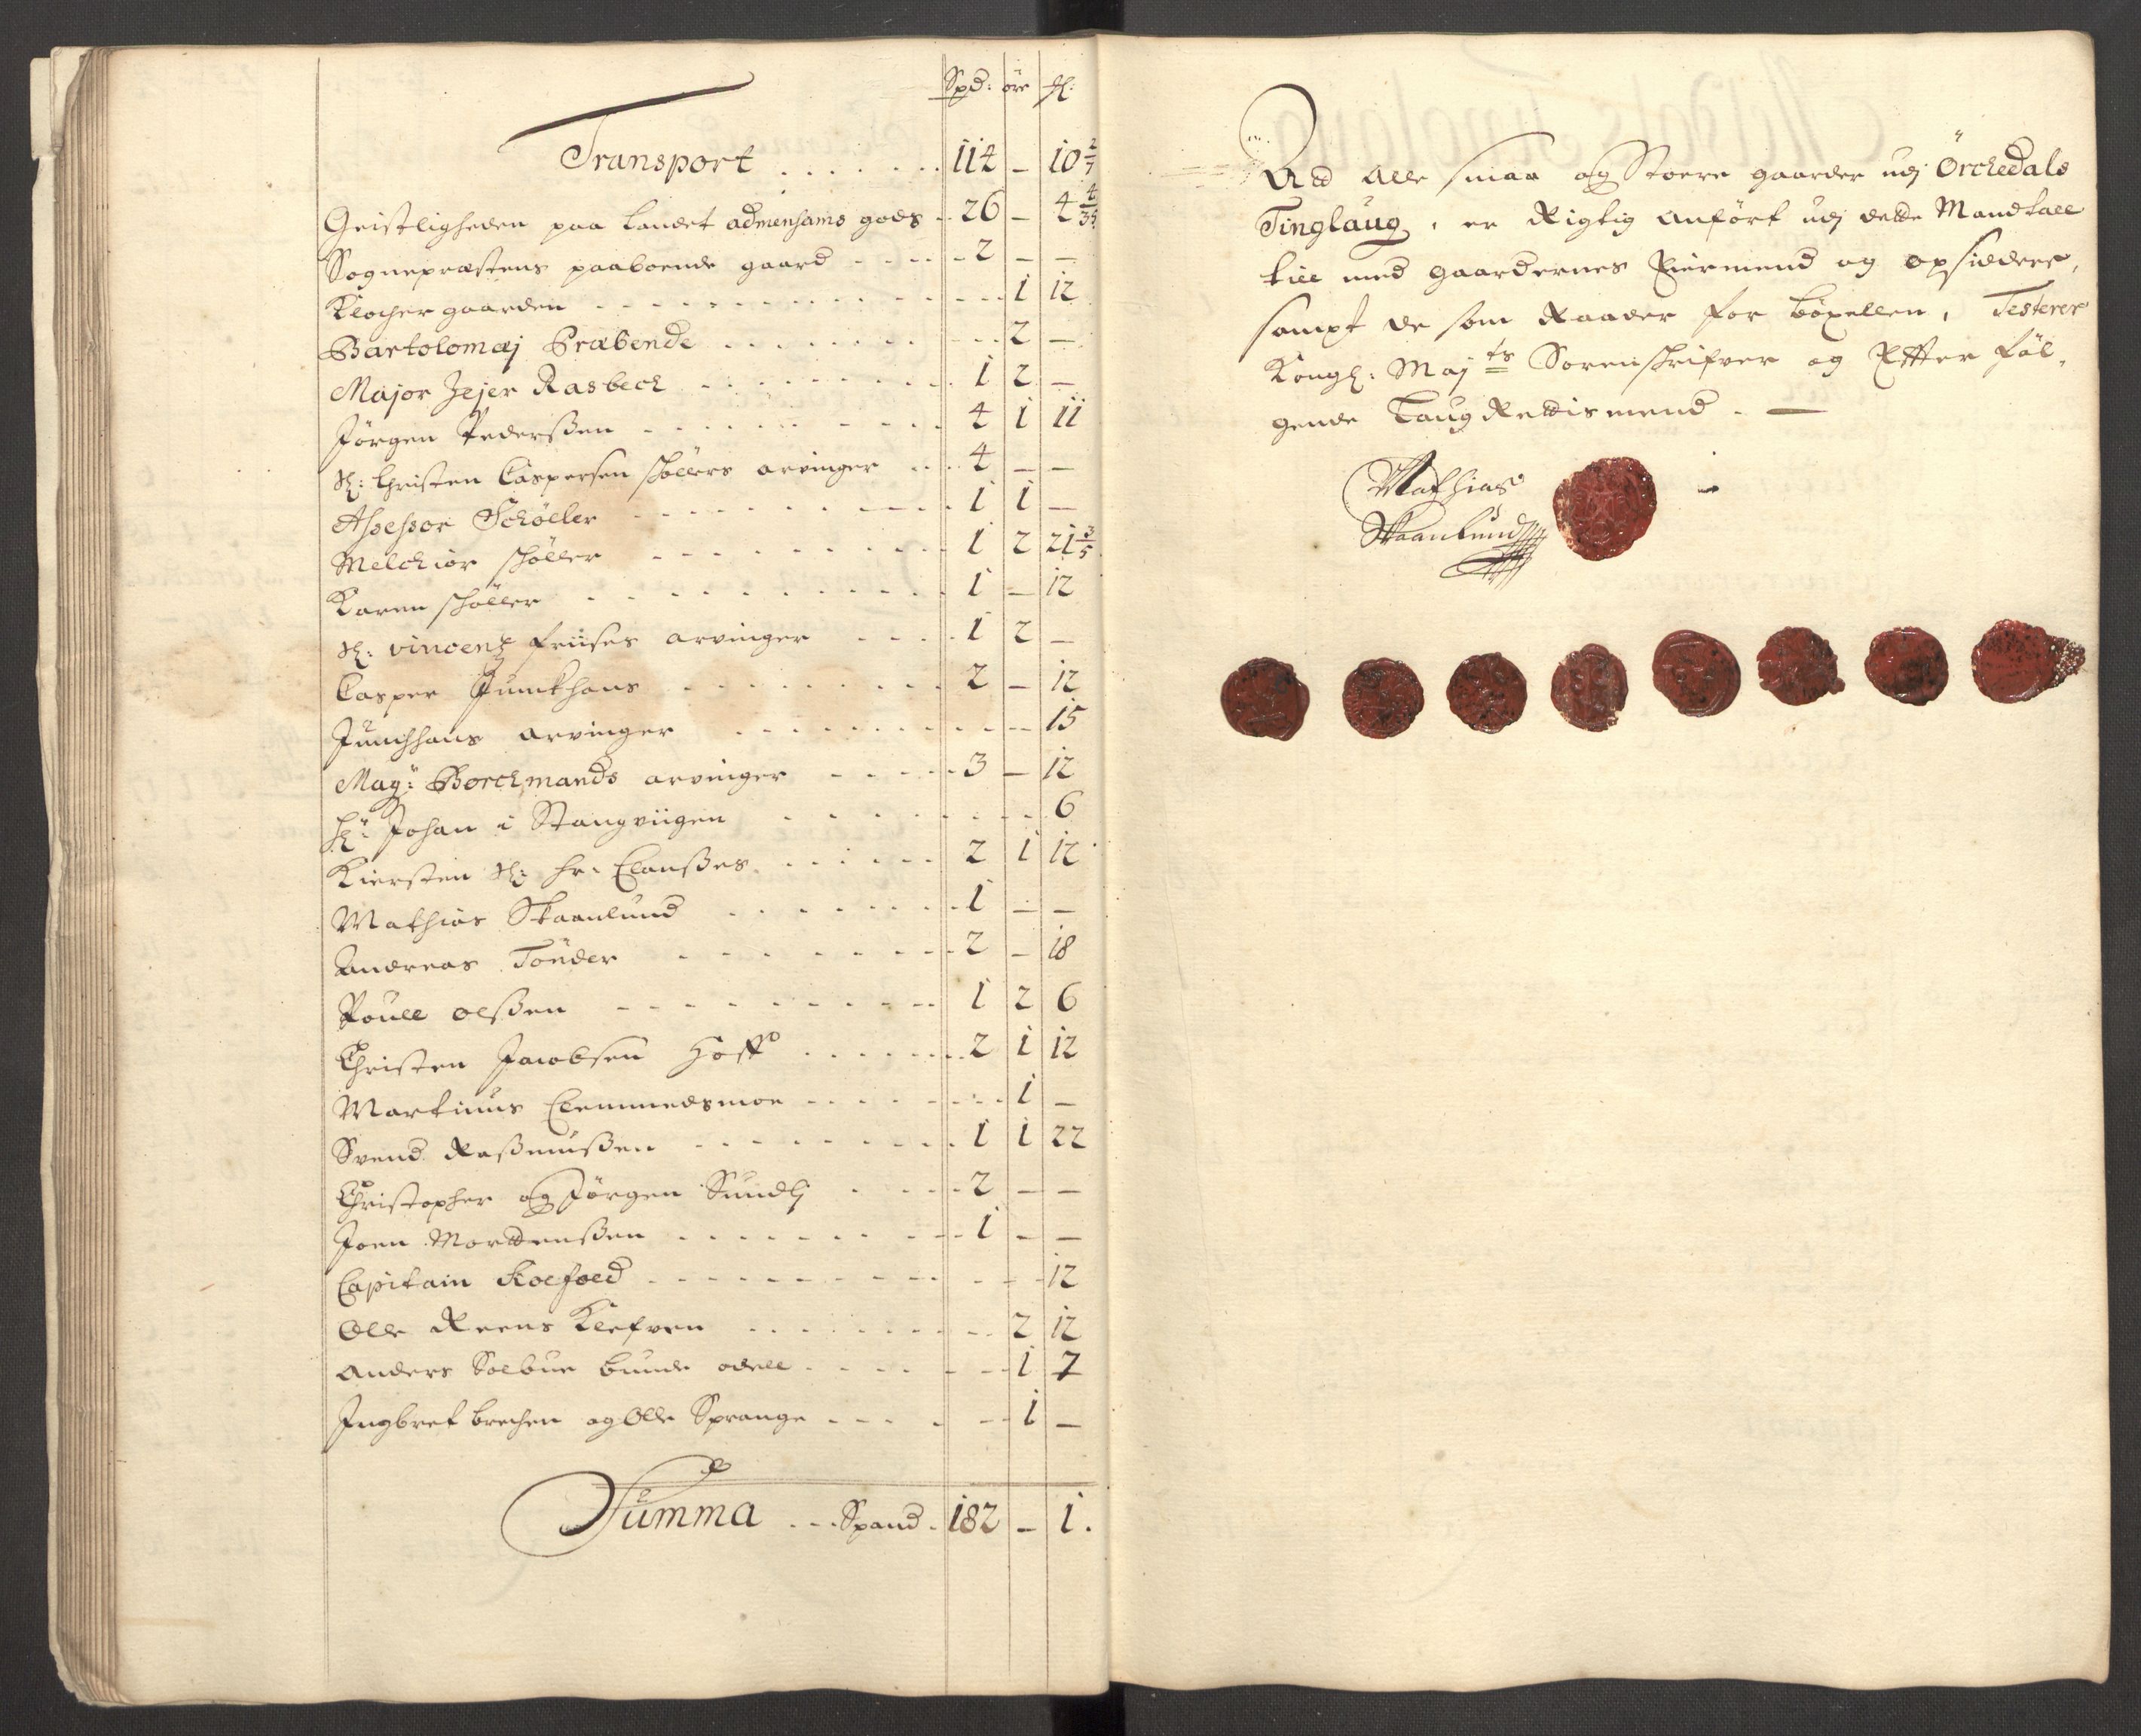 Spd: öre ɱl:
Transport . . . . . . 112 – 10 2/7
Geistligheden paa Landet admensams gods . . 26 – 4 4/35
Sogneprestens paaboende gaard - - - - 2 – –
Klocher gaarden - - - - - - - - - - 1 12
Bartolomæj Præbende . . . . . . . . . 2 –
Major Jejer Rasbech . . . . . . . . 1 2 –
Jörgen Pederßen - - - - - - - - 4 1 11
Sl: Christen Caspersen schöllers arvinger . . 4 – –
Assessor Schöller - - - - - - - - 1 1 –
Melchior schöller - - - - - - - - 1 2 21 3/5
Karen schöller - - - - - - - - - 1 – 12
Sl: vincentz friises arvinger - - - - 1 2 –
Casper Junkhans - - - - - - - - 2 – 12
Junchhans arvinger - - - - - - - - 15
Mag: Borchmands arvinger - - - - - 3 – 12
Hr: Johan i Stangviigen . . . . . . . 6
Kiersten Sl: hr: Clausßes . . . . . . 2 1 12
Mathias Skaanlund . . . . . . . . 1 – –
Andreas Tönder - - - - - - - - 2 – 18
Poull olßen - - - - - - - - - - 1 2 6
Christen Jacobsen Hoff . . . . . . . 2 1 12
Martinus Clemmedsmoe . . . . . . . 1 –
Svend Raßmußen - - - - - - - - - 1 1 22
Christopher og Jörgen Sundlj . . . . 2 – –
Joen Mordtenßen . . . . . . . . . . 1 – –
Capitain Koefoed - - - - - - - - - - 12
Olle Reens Klefven . . . . . . . . 2 12
Anders Solbue bunde odell - - - - - - 1 7
Ingbret brechen og Olle Sprange - - - - - 1 –
Summa . . . Spand . 182 – 1 .
Ad Alle smaa og Stoere gaarder udj Örchedals
Tinglaug, er Rigtig Anfört udj dette Mandtall
till med gaardernes Eiermend og opsiddere,
sampt de som Raader for böxellen, Testerer
Kongl: Majts Sorenschrifver og Efter föl-
gende Laug Rettismend . —
Mathias
Skaanlund